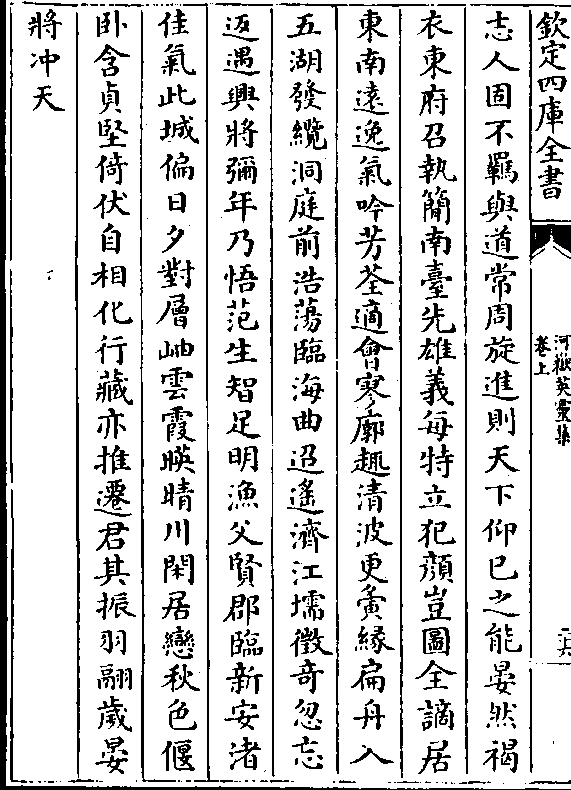 欽定四庫全書
河嶽英靈集
卷上
二六
志人固不羈與道常周旋進則天下仰已之能晏然褐
衣東府召執簡南臺先雄義每特立犯顔豈圖全謫居
東南遠逸氣吟芳荃適會寥廓趣清波更夤緣扁舟入
五湖發纜洞庭前浩蕩臨海曲迢遙濟江壖徵竒忽忘
返遇興將彌年乃悟范生智足明漁父賢郡臨新安渚
佳氣此城偏日夕對層岫雲霞暎晴川閑居戀秋色偃
卧含貞堅倚伏自相化行藏亦推遷君其振羽翮歲晏
將冲天